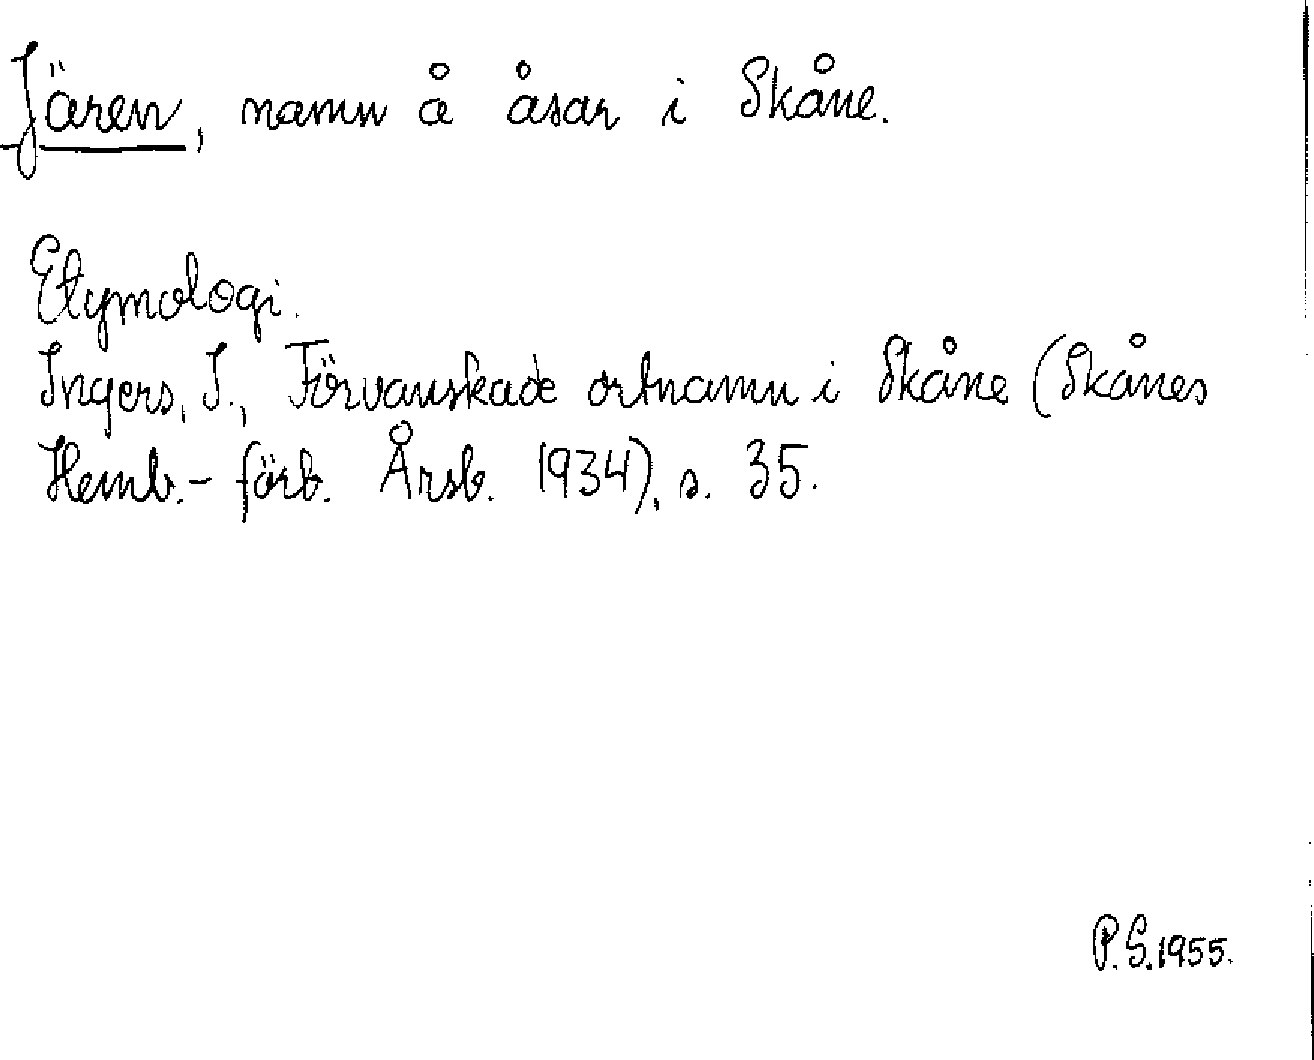 Jären, namn å åsar i Skåne.
Etymologi.
Ingers, I., Förvanskade ortnamn i Skåne (Skånes
Hemb.- förb. Årsb. 1934), s. 35.
P.S. 1955.